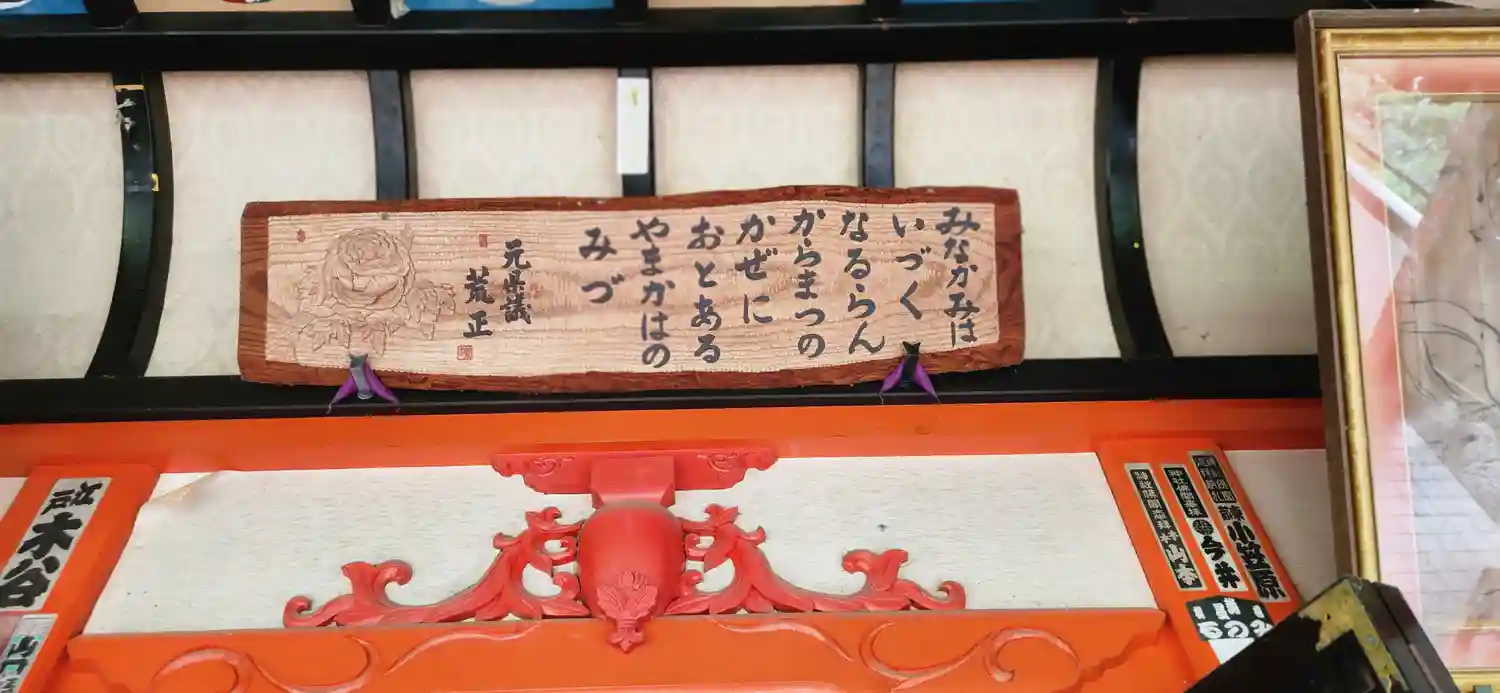 みなかみは
いづく
なるらん
からまつの
かぜに
おとある
やまかはの
みづ
元県議
荒正
江戸
木谷
小笠原
今井